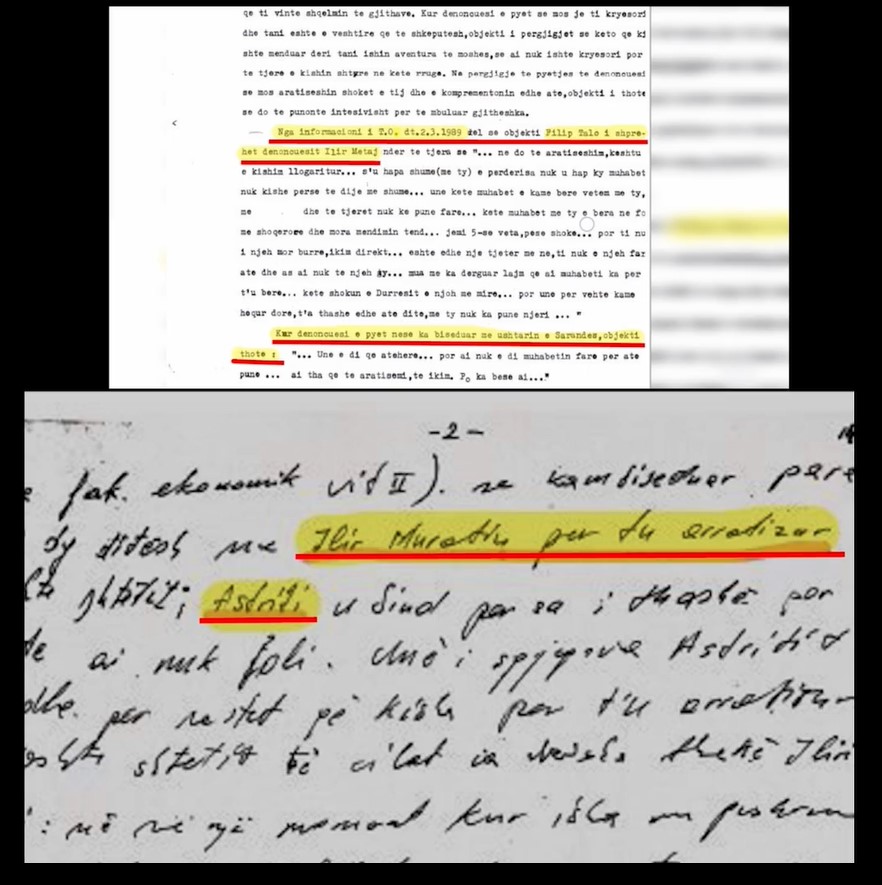 qe ti vinte shqelmin te gjithave. Kur denoncuesi e pyet se mos je ti kryesori
dhe tani eshte e veshtire qe te shkeputesh,objekti i pergjigjet se keto qe ki
shte menduar deri tani ishin aventura te moshes,se ai nuk ishte kryesori por
te tjere e kishin shtyre ne kete rruge. Ne pergjigje te pyetjes te denoncuesi
se mos aratiseshin shoket e tij dhe e komprementonin edhe ate,objekti i thote
se do te punonte intesivisht per te mbuluar gjitheshka.
Nga informacioni i T.O. dt.2.3.1989 del se objekti Filip Talo i shpre-
het denoncuesit Ilir Metaj nder te tjera se "... ne do te aratiseshim,keshtu
e kishim llogaritur... s'u hapa shume(me ty) e perderisa nuk u hap ky muhabet
nuk kishe perse te dije me shume... une kete muhabet e kame bere vetem me ty,
me dhe te tjeret nuk ke pune fare... kete muhabet me ty e bera ne fo
me shoqerore dhe mora mendimin tend... jemi 5-se veta,pese shoke... por ti nu
i njeh mor burre,ikim direkt... eshte edhe nje tjeter me ne,ti nuk e njeh far
ate dhe as ai nuk te njeh ty... mua me ka derguar lajm qe ai muhabeti ka per
t'u bere... kete shokun e Durresit e njoh me mire... por une per vehte kame
hequr dore,t'a thashe edhe ate dite,me ty nuk ka pune njeri ... "
Kur denoncuesi e pyet nese ka biseduar me ushtarin e Sarandes,objekti
thote : "... Une e di qe atehere... por ai nuk e di muhabetin fare per ate
pune ... ai tha qe te aratisemi,te ikim. Po ka bese ai..."
-2-
fak. ekonomik vit II). se kam biseduar para
dy ditesh me Ilir Muratin per tu arratisur
shtetit; Astriti u bind por sa i thashë por
ai nuk foli. Unë i spjegova Astritit
dhe per rastet që kisha per t'u arratisur
shtetit të cilat ia kisha thënë Ilir
në një moment kur isha me pushim